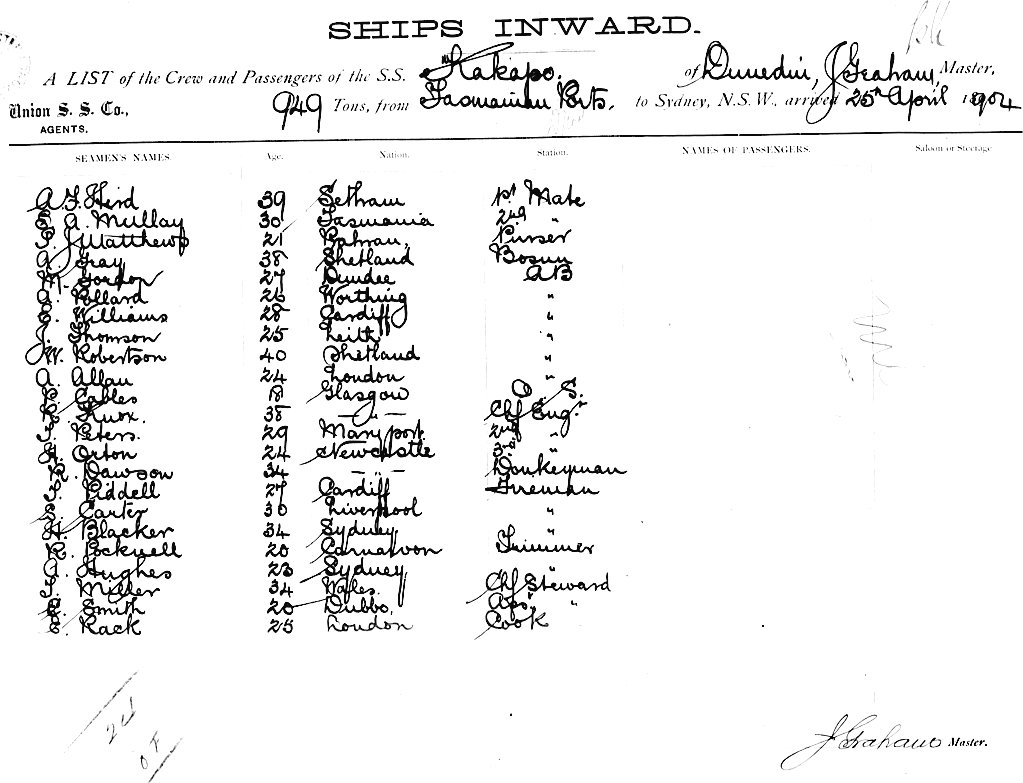 SHIPS INWARD.
A LIST of the Crew and Passengers of the S.S. Kakapo. of Dunedin, J Graham, Master,
Union S. S. Co., 949 Tons, from Tasmanian Ports. to Sydney, N.S.W., arrived 25th April 1904
AGENTS.
SEAMEN'S NAMES. Age. Nation. Station. NAMES OF PASSENGERS. Saloon or Steerage
A. F. Hird 39 Seaham 1st Mate
E. A. Mullay 30 Tasmania 2nd "
P. J Matthews 21 Prahran, Purser
A. Gray 38 Shetland Bosun
M. Gordon 27 Dundee AB
A. Pollard 26 Worthing "
E. Williams 28 Cardiff "
J. Thomson 25 Leith "
J W. Robertson 40 Shetland "
A. Allan 24 London "
P. Cables 18 Glasgow O S.
R. Knox. 38 — " — Chf Engr
T. Peters. 29 Maryport 2nd "
H. Orton 24 Newcastle 3rd "
R. Dawson 34 — " — Donkeyman
T. Riddell 27 Cardiff Fireman
S. Carter 30 Liverpool "
H. Blacker 34 Sydney "
R. Pocknell 20 Carnarvon Trimmer
A. Hughes 23 Sydney "
T. Miller 34 Wales. Chf Steward
E. Smith 20 Dubbo. "
E. Rack 25 London Cook
24
J Graham Master.